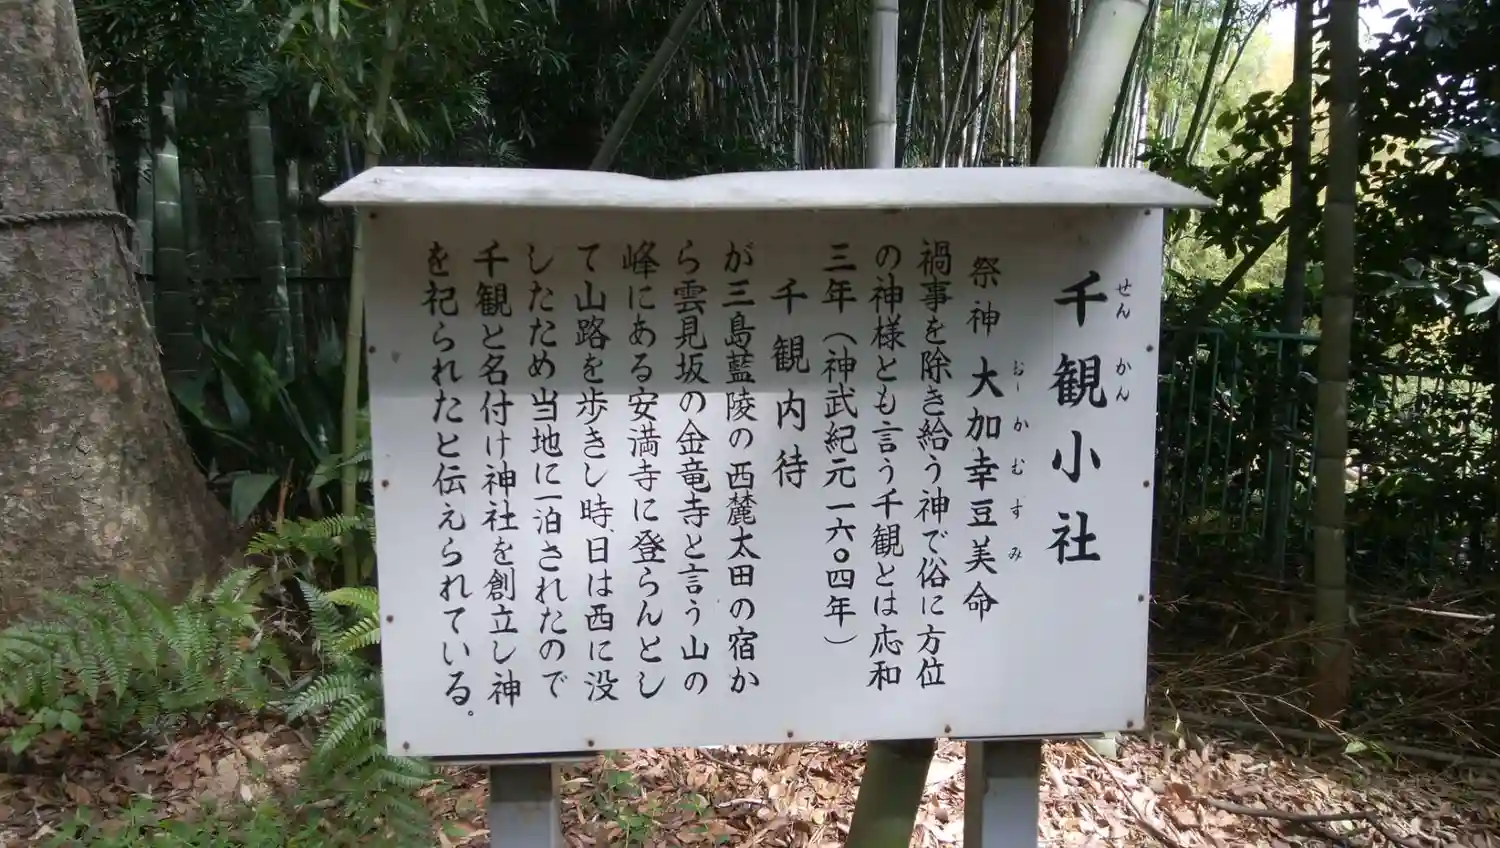 千観小社
せんかん
祭神 大加幸豆美命
おーかむすみ
禍事を除き給う神で俗に方位
の神様とも言う千観とは応和
三年（神武紀元一六〇四年）
千観内待
が三島藍陵の西麓太田の宿か
ら雲見坂の金竜寺と言う山の
峰にある安満寺に登らんとし
て山路を歩きし時、日は西に没
したため当地に一泊されたので
千観と名付け神社を創立し神
を祀られたと伝えられている。